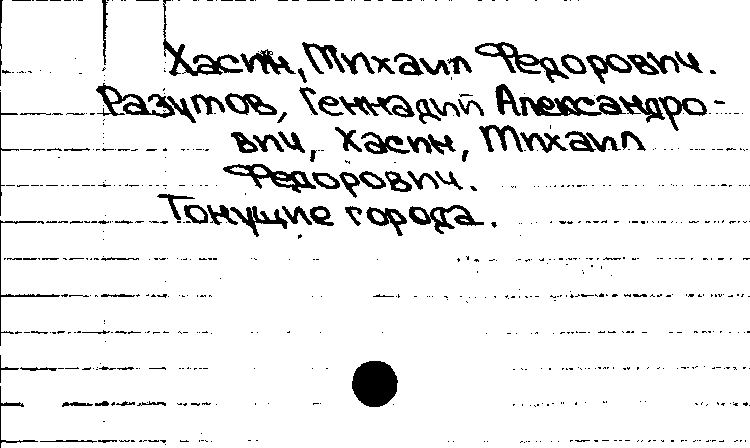 Хасин, Михаил Федорович.
Разумов, Геннадий Александро-
вич, Хасин, Михаил
Федорович.
Тонущие города.